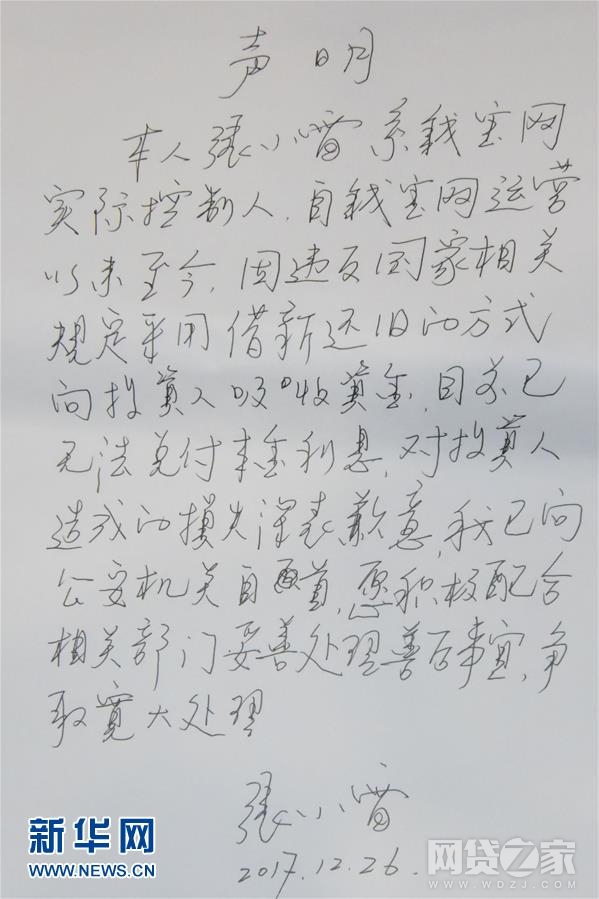 声明
本人張小雷系钱宝网
实际控制人，自钱宝网运营
以来至今，因违反国家相关
規定采用借新还旧的方式
向投資人吸收資金，目前已
无法兑付本金利息，对投資人
造成的損失深表歉意，我已向
公安机关自首，愿积极配合
相关部门妥善处理善后事宜，争
取寛大处理
張小雷
2017.12.26.
新华网
WWW.NEWS.CN
网贷之家
WWW.WDZJ.COM